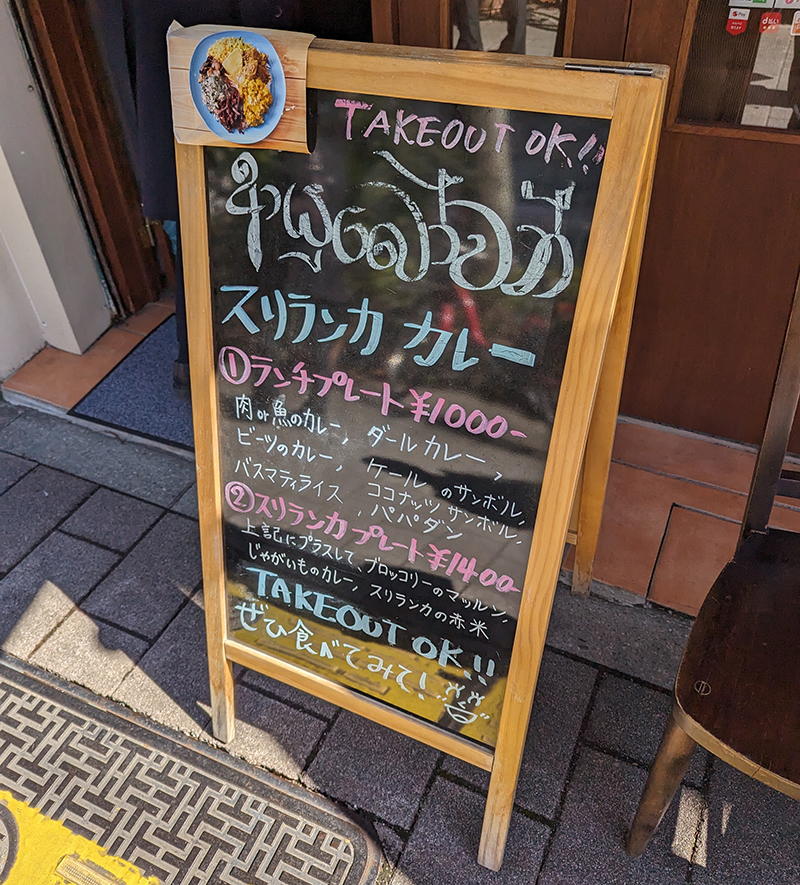 TAKEOUT OK!!
スリランカ カレー
①ランチプレート ¥1000-
肉or魚のカレー, ダールカレー,
ビーツのカレー, ケールのサンボル,
バスマティライス, ココナッツサンボル,
パパダン
②スリランカプレート ¥1400-
上記にプラスして、ブロッコリーのマッルン,
じゃがいものカレー, スリランカの赤米
TAKEOUT OK!!
ぜひ食べてみて!